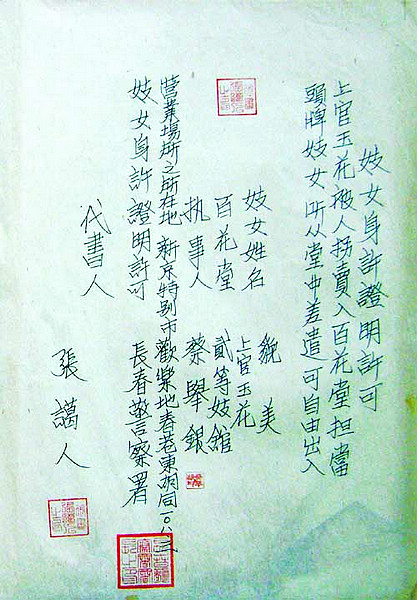 妓女身許證明許可
上官玉花被人拐賣入百花堂担當
頭牌妓女所从堂中差遣可自由出入
妓女姓名 貌美
上官玉花
百花堂 貳等妓館
执事人 蔡舉銀
營業場所之所在地 新京特别市歡樂地春巷東胡同一〇八
妓女身許證明許可 長春警察署
代書人 張謁人